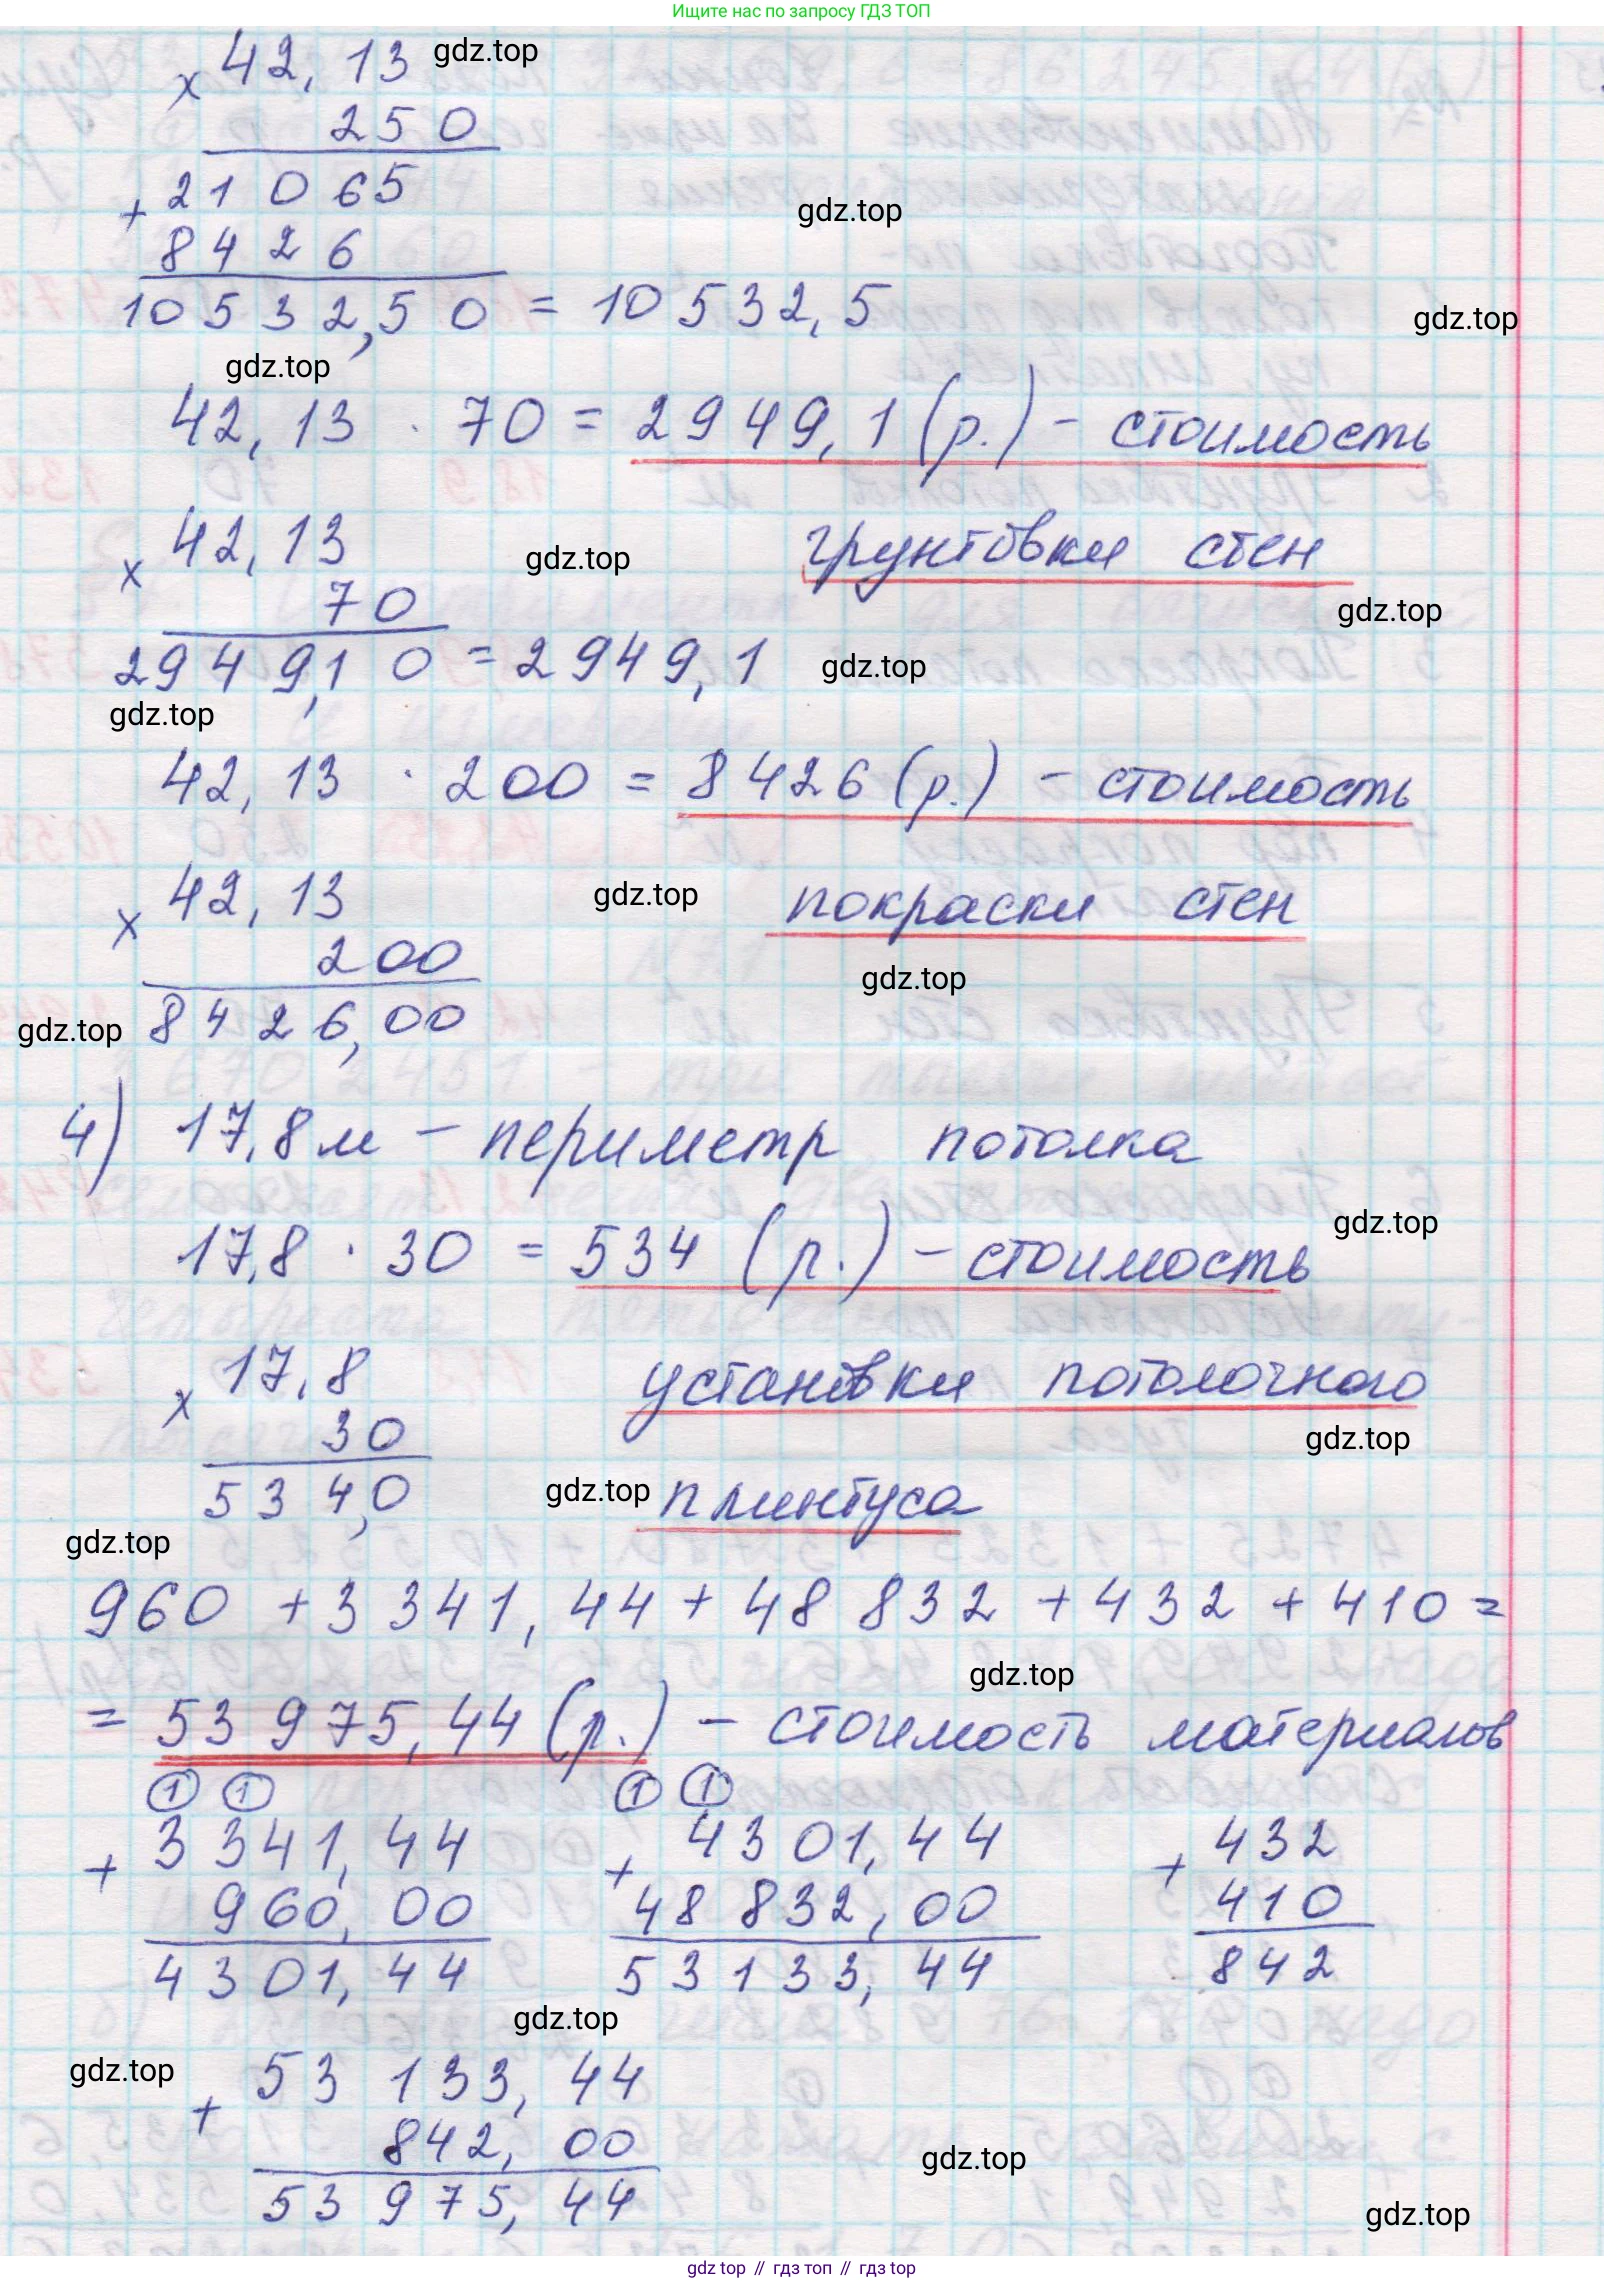 Ищите нас по запросу ГДЗ ТОП
× 42,13 gdz.top
250
+ 21065
gdz.top
8426
10532,50 = 10532,5
gdz.top
gdz.top
42,13 · 70 = 2949,1 (р.) – стоимость
× 42,13 gdz.top грунтовки стен
70 gdz.top
2949,10 = 2949,1 gdz.top
gdz.top
42,13 · 200 = 8426 (р.) – стоимость
× 42,13 gdz.top покраски стен
200
gdz.top
gdz.top 8426,00
4) 17,8 м – периметр потолка
gdz.top
17,8 · 30 = 534 (р.) – стоимость
× 17,8 установки потолочного
30 gdz.top
534,0 gdz.top плинтуса
gdz.top
960 + 3 341,44 + 48 832 + 432 + 410 =
gdz.top
= 53 975,44 (р.) – стоимость материалов
① ① ① ①
+ 3341,44 + 4301,44 + 432
960,00 48 832,00 410
4301,44 53133,44 842
gdz.top
gdz.top
+ 53 133,44
842,00
gdz.top
53 975,44
gdz.top
gdz top // гдз топ // гдз top